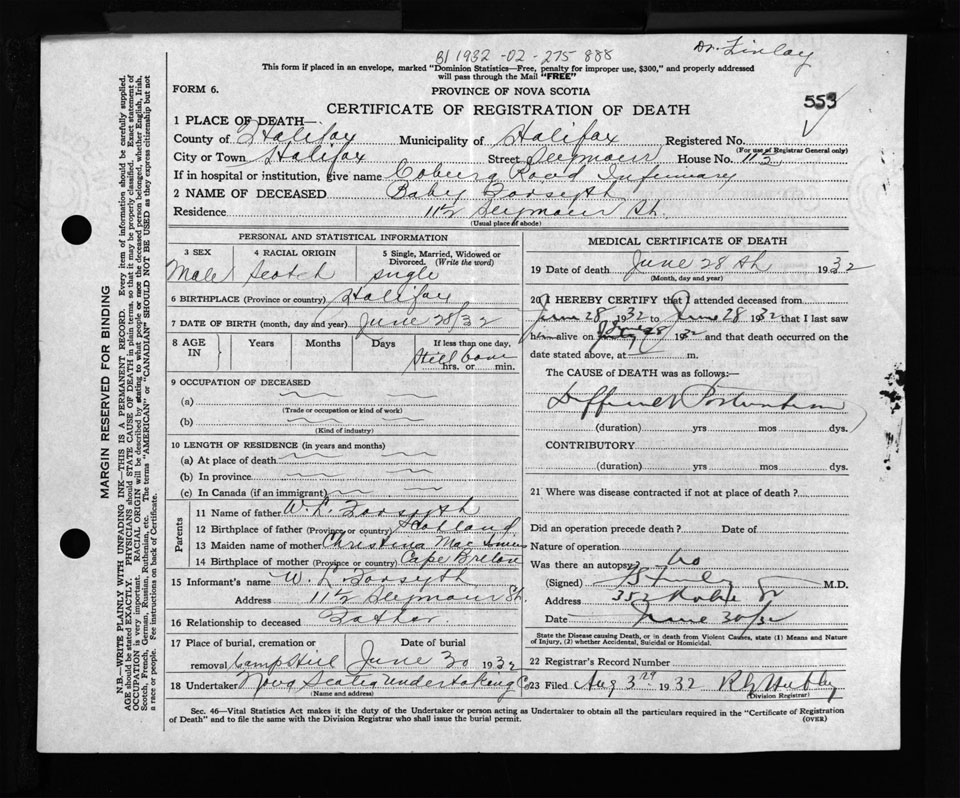 Dr. Finlay
B1 1932-02-275888
This form if placed in an envelope, marked "Dominion Statistics—Free, penalty for improper use, $300," and properly addressed
will pass through the Mail "FREE"
FORM 6.
PROVINCE OF NOVA SCOTIA
553
CERTIFICATE OF REGISTRATION OF DEATH
1 PLACE OF DEATH—
County of Halifax Municipality of Halifax Registered No.
(For use of Registrar General only)
City or Town Halifax Street Seymour House No. 112
If in hospital or institution, give name Coburg Road Infirmary
2 NAME OF DECEASED Baby Forsyth
Residence 112 Seymour St.
(Usual place of abode)
PERSONAL AND STATISTICAL INFORMATION
3 SEX
4 RACIAL ORIGIN
5 Single, Married, Widowed or
Divorced. (Write the word)
Male Scotch single
6 BIRTHPLACE (Province or country) Halifax
7 DATE OF BIRTH (month, day and year) June 28/32
8 AGE
IN
Years Months Days If less than one day,
Still born
hrs. or min.
9 OCCUPATION OF DECEASED
(a)
(Trade or occupation or kind of work)
(b)
(Kind of industry)
10 LENGTH OF RESIDENCE (in years and months)
(a) At place of death
(b) In province
(c) In Canada (if an immigrant)
Parents
11 Name of father W. L. Forsyth
12 Birthplace of father (Province or country) Scotland
13 Maiden name of mother Christina Mac
14 Birthplace of mother (Province or country) Cape Breton
15 Informant's name W. L. Forsyth
Address 112 Seymour St.
16 Relationship to deceased Father
17 Place of burial, cremation or Date of burial
removal Camp Hill June 30 1932
18 Undertaker Nova Scotia Undertaking Co
(Name and address)
MEDICAL CERTIFICATE OF DEATH
19 Date of death June 28th 1932
(Month, day and year)
20 I HEREBY CERTIFY that I attended deceased from
June 28 1932 to June 28 1932 that I last saw
him alive on June 28 1932 and that death occurred on the
date stated above, at m.
The CAUSE of DEATH was as follows:—
(duration) yrs mos dys.
CONTRIBUTORY
(duration) yrs mos dys.
21 Where was disease contracted if not at place of death?
Did an operation precede death? Date of
Nature of operation
Was there an autopsy? No
(Signed) M.D.
Address 352 Robie St
Date June 30/32
State the Disease causing Death, or in death from Violent Causes, state (1) Means and Nature
of Injury, (2) whether Accidental, Suicidal or Homicidal.
22 Registrar's Record Number
23 Filed Aug 3rd 1932
(Division Registrar)
Sec. 46—Vital Statistics Act makes it the duty of the Undertaker or person acting as Undertaker to obtain all the particulars required in the "Certificate of Registration
of Death" and to file the same with the Division Registrar who shall issue the burial permit.
(OVER)
MARGIN RESERVED FOR BINDING
N.B.—WRITE PLAINLY WITH UNFADING INK—THIS IS A PERMANENT RECORD. Every item of information should be carefully supplied.
AGE should be stated EXACTLY. PHYSICIANS should STATE CAUSE OF DEATH in plain terms, so that it may be properly classified. Exact statement of
OCCUPATION is very important. RACIAL ORIGIN will be described by stating to what people or race the deceased person belonged, whether English, Irish,
Scotch, French, German, Russian, Ruthenian, etc. The terms "AMERICAN" or "CANADIAN" SHOULD NOT BE USED as they express citizenship but not
a race or people. Fee instructions on back of Certificate.